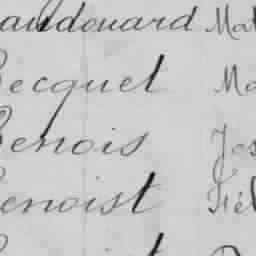 audouard Mat
Becquet Ma
Benois Jes
Benoist Fél